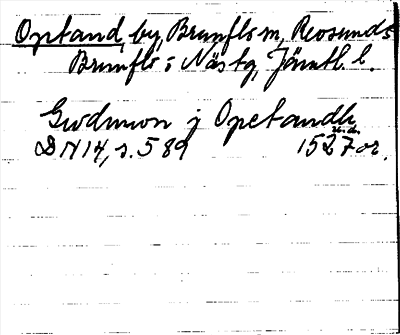 Optand, by, Brunflo sn, Revsunds
Brunflo i Näs tg, Jämtl. l.
Gwdmwn j Opetandh
u.a.
DN 14, s. 589 1527 or.